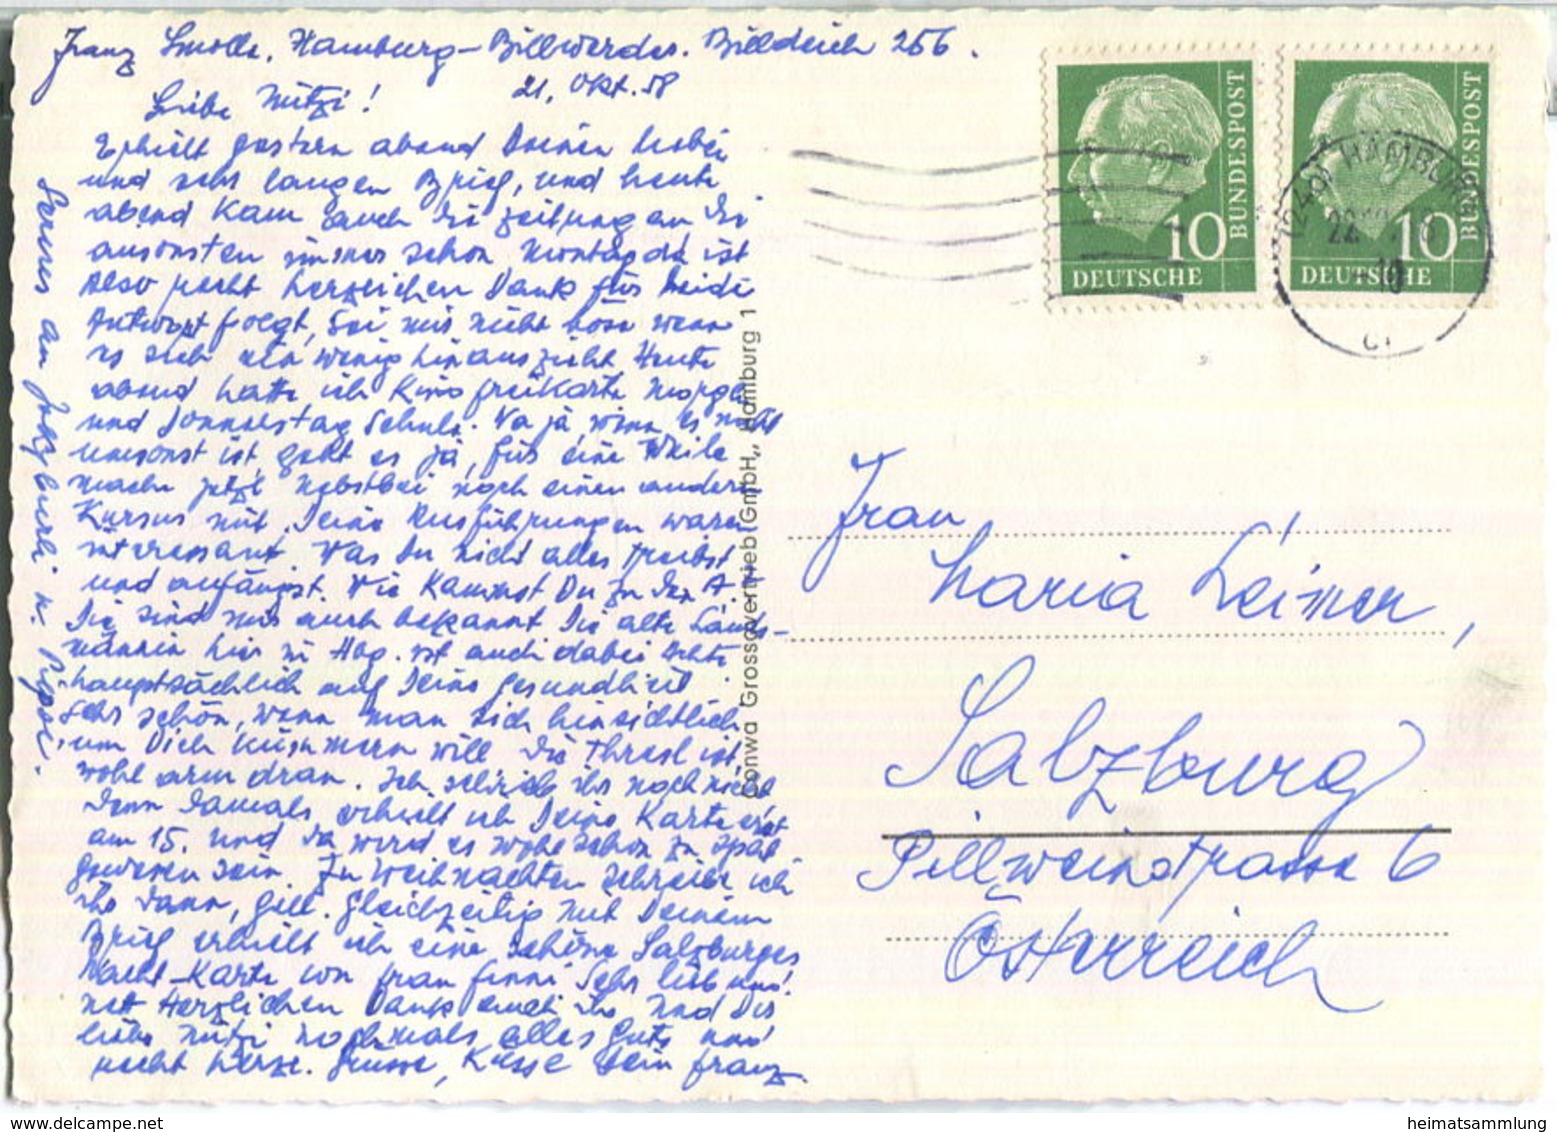 Franz Smolle, Hamburg-Billwerder. Billdeich 256.
21. Okt. 58
Liebe Mutzi!
Erhielt gestern abend Deinen lieben
und sehr langen Brief, und heute
abend kam auch die Zeitung an die
ansonsten immer schon Montag da ist
Also recht herzlichen Dank für beide
Antwort folgt, Sei mir nicht böse wenn
es sich ein wenig hinauszieht Heute
abend hatte ich Kino freikarte Morgen
und Donnerstag Schule. Na ja wenn es nicht
umsonst ist, geht es ja, für eine Weile
mache jetzt nebstbei noch einen anderen
Kursus mit. Deine Ausführungen waren
interessant. Was Du nicht alles treibst
und anfängst. Wie kommst Du zu den A.
Die sind mir auch bekannt Die alte Lands-
männin hier in Hbg. ist auch dabei Achte
hauptsächlich auf Deine Gesundheit
Sehr schön, wenn man sich hinsichtlich
um Dich kümmern will Die Thresl ist
wohl arm dran. Ich schrieb ihr noch nicht
Denn damals erhielt ich Deine Karte erst
am 15. und da wird es wohl schon zu spät
gewesen sein. Zu Weihnachten schreibe ich
ihr dann, gell. Gleichzeitig mit Deinem
Brief erhielt ich eine schöne Salzburger
Nacht-Karte von Frau Finni Sehr lieb und
nett Herzlichen Dank auch ihr Und Dir
liebe Mutzi nochmals alles Gute und
recht herzl. Grüsse, Küsse Dein Franz.
Servus an
Conwa Grossovertrieb GmbH., Hamburg 1
DEUTSCHE
BUNDESPOST
10
DEUTSCHE
BUNDESPOST
10
HAMBURG
Frau
Maria Leimer,
Salzburg
Pillweinstrasse 6
Österreich
heimatsammlung
www.delcampe.net